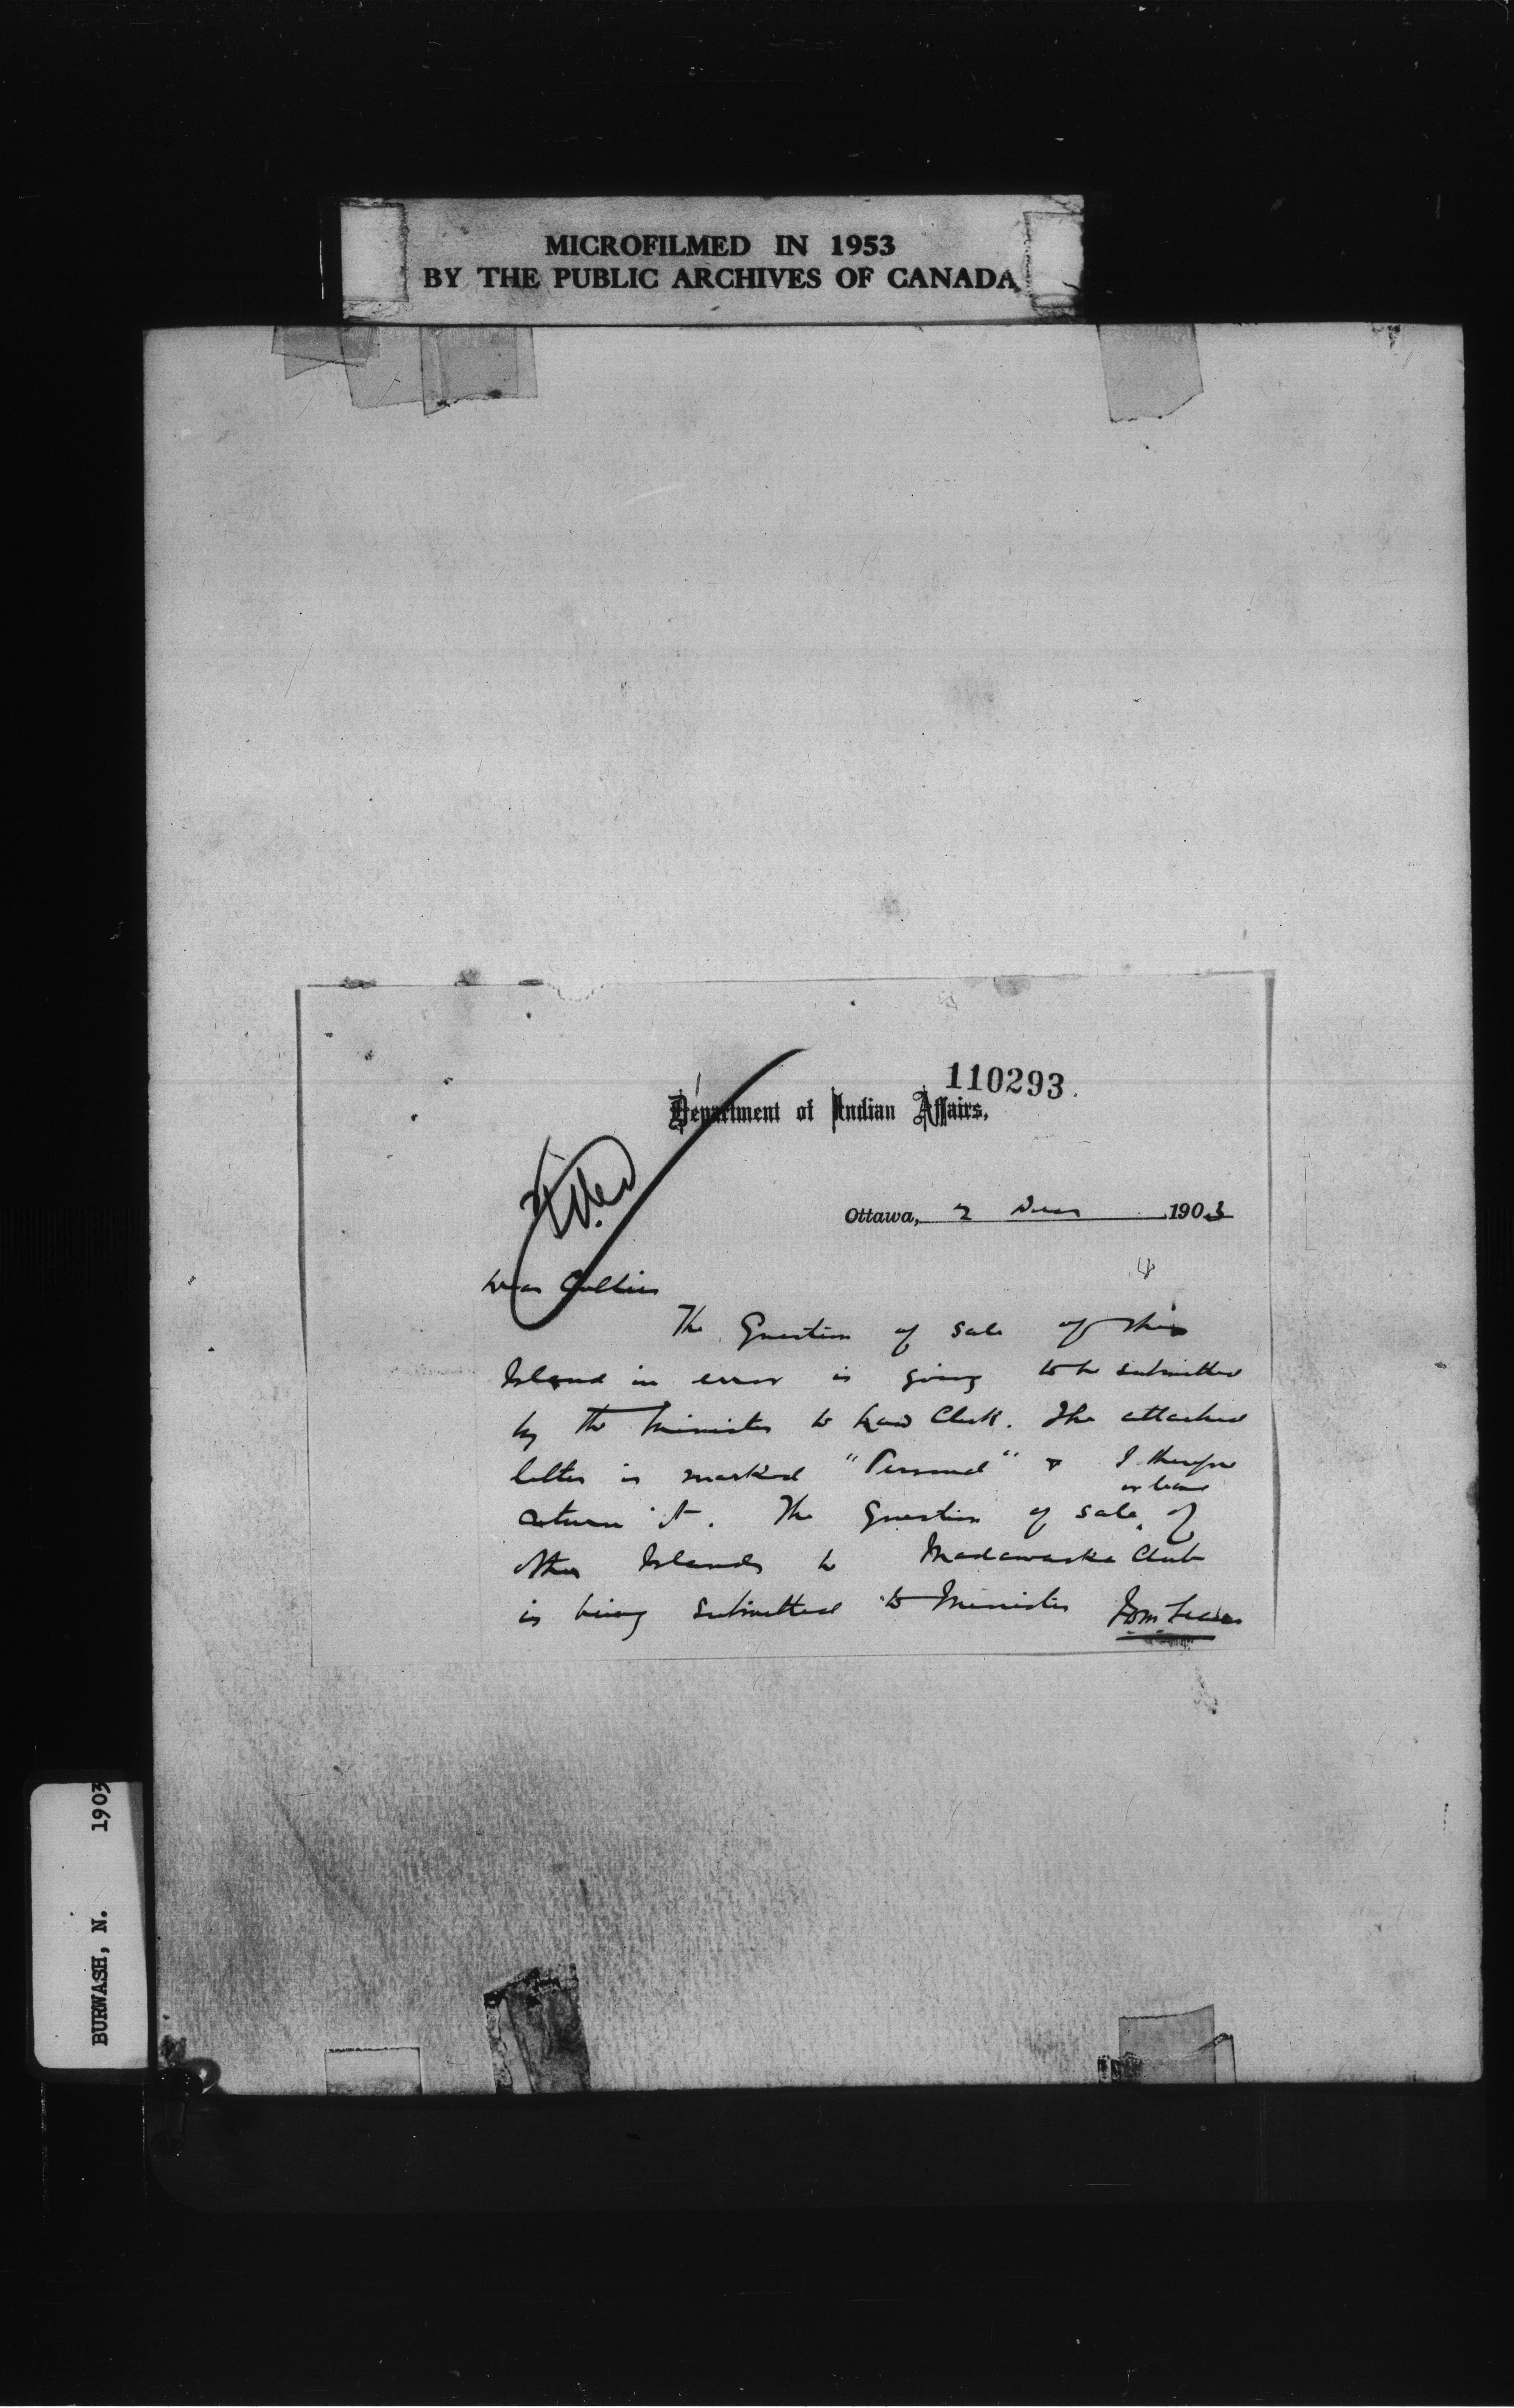 MICROFILMED IN 1953
BY THE PUBLIC ARCHIVES OF CANADA
110293
Department of Indian Affairs,
Filed
Ottawa, 2 1903
Dear
The Question of sale of this
Island in error is going to be submitted
by the Minister to Law Clerk. The attached
letter is marked "Personal" & I therefore
return it. The Question of sale or lease of
other Islands to Madawaska Club
is being submitted to Minister
BURWASH, N. 1903